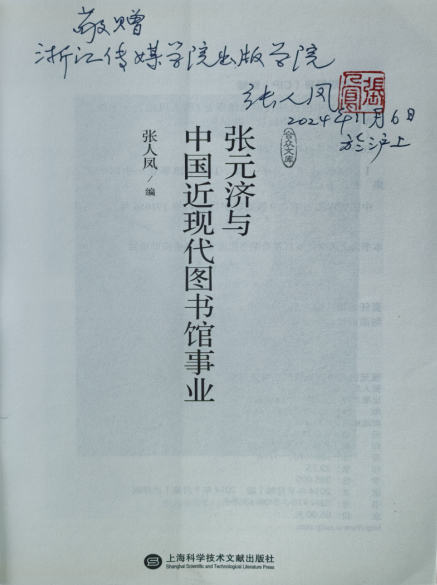 敬赠
浙江传媒学院出版学院
张人凤
2024年11月6日
于沪上
张元济与
中国近现代图书馆事业
合众文库
张人凤/编
上海科学技术文献出版社
Shanghai Scientific and Technological Literature Press